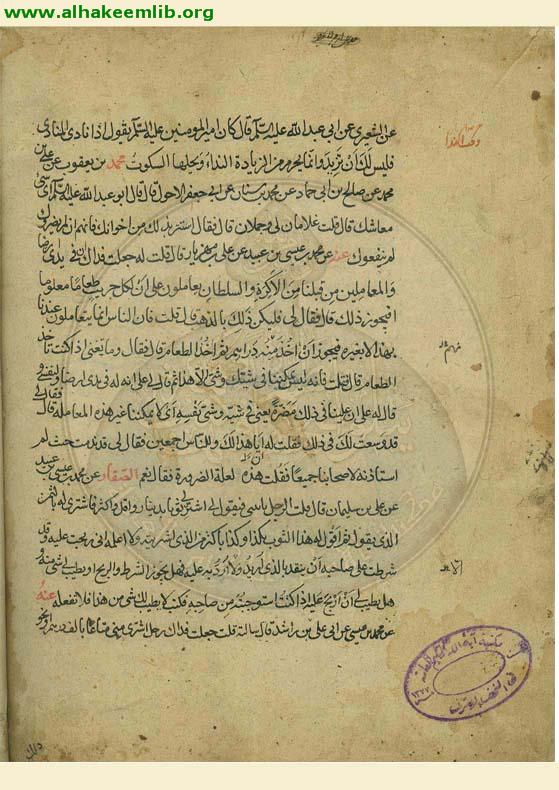 www.alhakeemlib.org
عن الشعيري عن ابي عبد الله عليه السلام قال كان امير المؤمنين عليه السلام يقول اذا نادى المنادى
فليس لك ان تزيد وانما يحرم من الزيادة النداء ويحلها السكوت محمد بن يعقوب عن علي بن
محمد عن صالح بن ابي حماد عن محمد بن سنان عن ابي جعفر الاحول قال قال ابو عبد الله عليه السلام اي شي
معاشك قال قلت غلامان لي وجملان قال فقال استتر بذلك من اخوانك فانهم ان لم يضروك
لم ينفعوك عنه عن محمد بن عيسى بن عبيد عن علي بن مهزيار قال قلت له جعلت فداك ان في يدي ارضا
والمعاملين من قبلنا من الاكرة والسلطان يعاملون على ان لكل جريب طعاما معلوما
افيجوز ذلك قال فقال لي فليكن ذلك بالذهب قال قلت فان الناس انما يتعاملون عندنا
بهذا لا بغيره فيجوز ان اخذ منه دراهم ثم اخذ الطعام قال فقال وما تعني اذا كنت تاخذ
الطعام قال فقلت فانه ليس يمكننا في شيئك وشيي الا هذا ثم قال لي على ان له في يدي ارضا ولنفسي
قال له على ان علينا في ذلك مضرة يعني في شيئه وشي نفسه اي لا يمكننا غير هذه المعاملة قال فقال لي
قد وسعت لك في ذلك فقلت له ان هذا لك وللناس اجمعين فقال لي قد ندمت حيث لم
استاذنه لاصحابنا جميعا فقلت هذه لعلة الضرورة فقال نعم الصفار عن محمد بن عيسى بن عبيد
عن علي بن سليمان قال قلت الرجل ياتيني فيقول لي اشتر لي ثوبا بدينار واقل واكثر فاشتري له بالثمن
الذي يقول ثم اقول له هذا الثوب بكذا وكذا باكثر من الذي اشتريته ولا اعلمه اني ربحت عليه وقد
شرطت على صاحبه ان ينقد بالذي اريد والا ارد به عليه فهل يجوز الشرط والربح او يطيب لي شي منه و
هل يطيب لي ان اربح عليه اذا كنت استوجبته من صاحبه فكتب لا يطيب لك شي من هذا فلا تفعله عنه
عن محمد بن عيسى عن ابي علي بن راشد قال سالته قلت جعلت فداك رجل اشترى مني متاعا بالف درهم او نحو